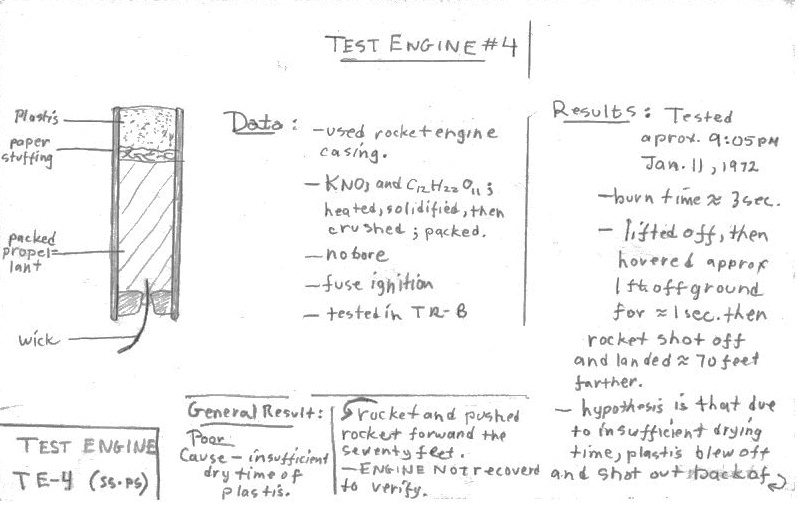 TEST ENGINE #4
Plastis
paper
stuffing
packed
propel=
lant
wick
Data:
- used rocket engine
casing.
- KNO3 and C12H22O11;
heated, solidified, then
crushed; packed.
- no bore
- fuse ignition
- tested in TR-B
Results: Tested
aprox. 9:05PM
Jan. 11, 1972
- burn time ≈ 3 sec.
- lifted off, then
hovered approx
1 ft. off ground
for ≈ 1 sec. then
rocket shot off
and landed ≈ 70 feet
farther.
- hypothesis is that due
to insufficient drying
time, plastis blew off
and shot out back of
rocket and pushed
rocket forward the
seventy feet.
- ENGINE NOT recoverd
to verify.
General Result:
Poor
Cause - insufficient
dry time of
plastis.
TEST ENGINE
TE-4 (SS.PS)